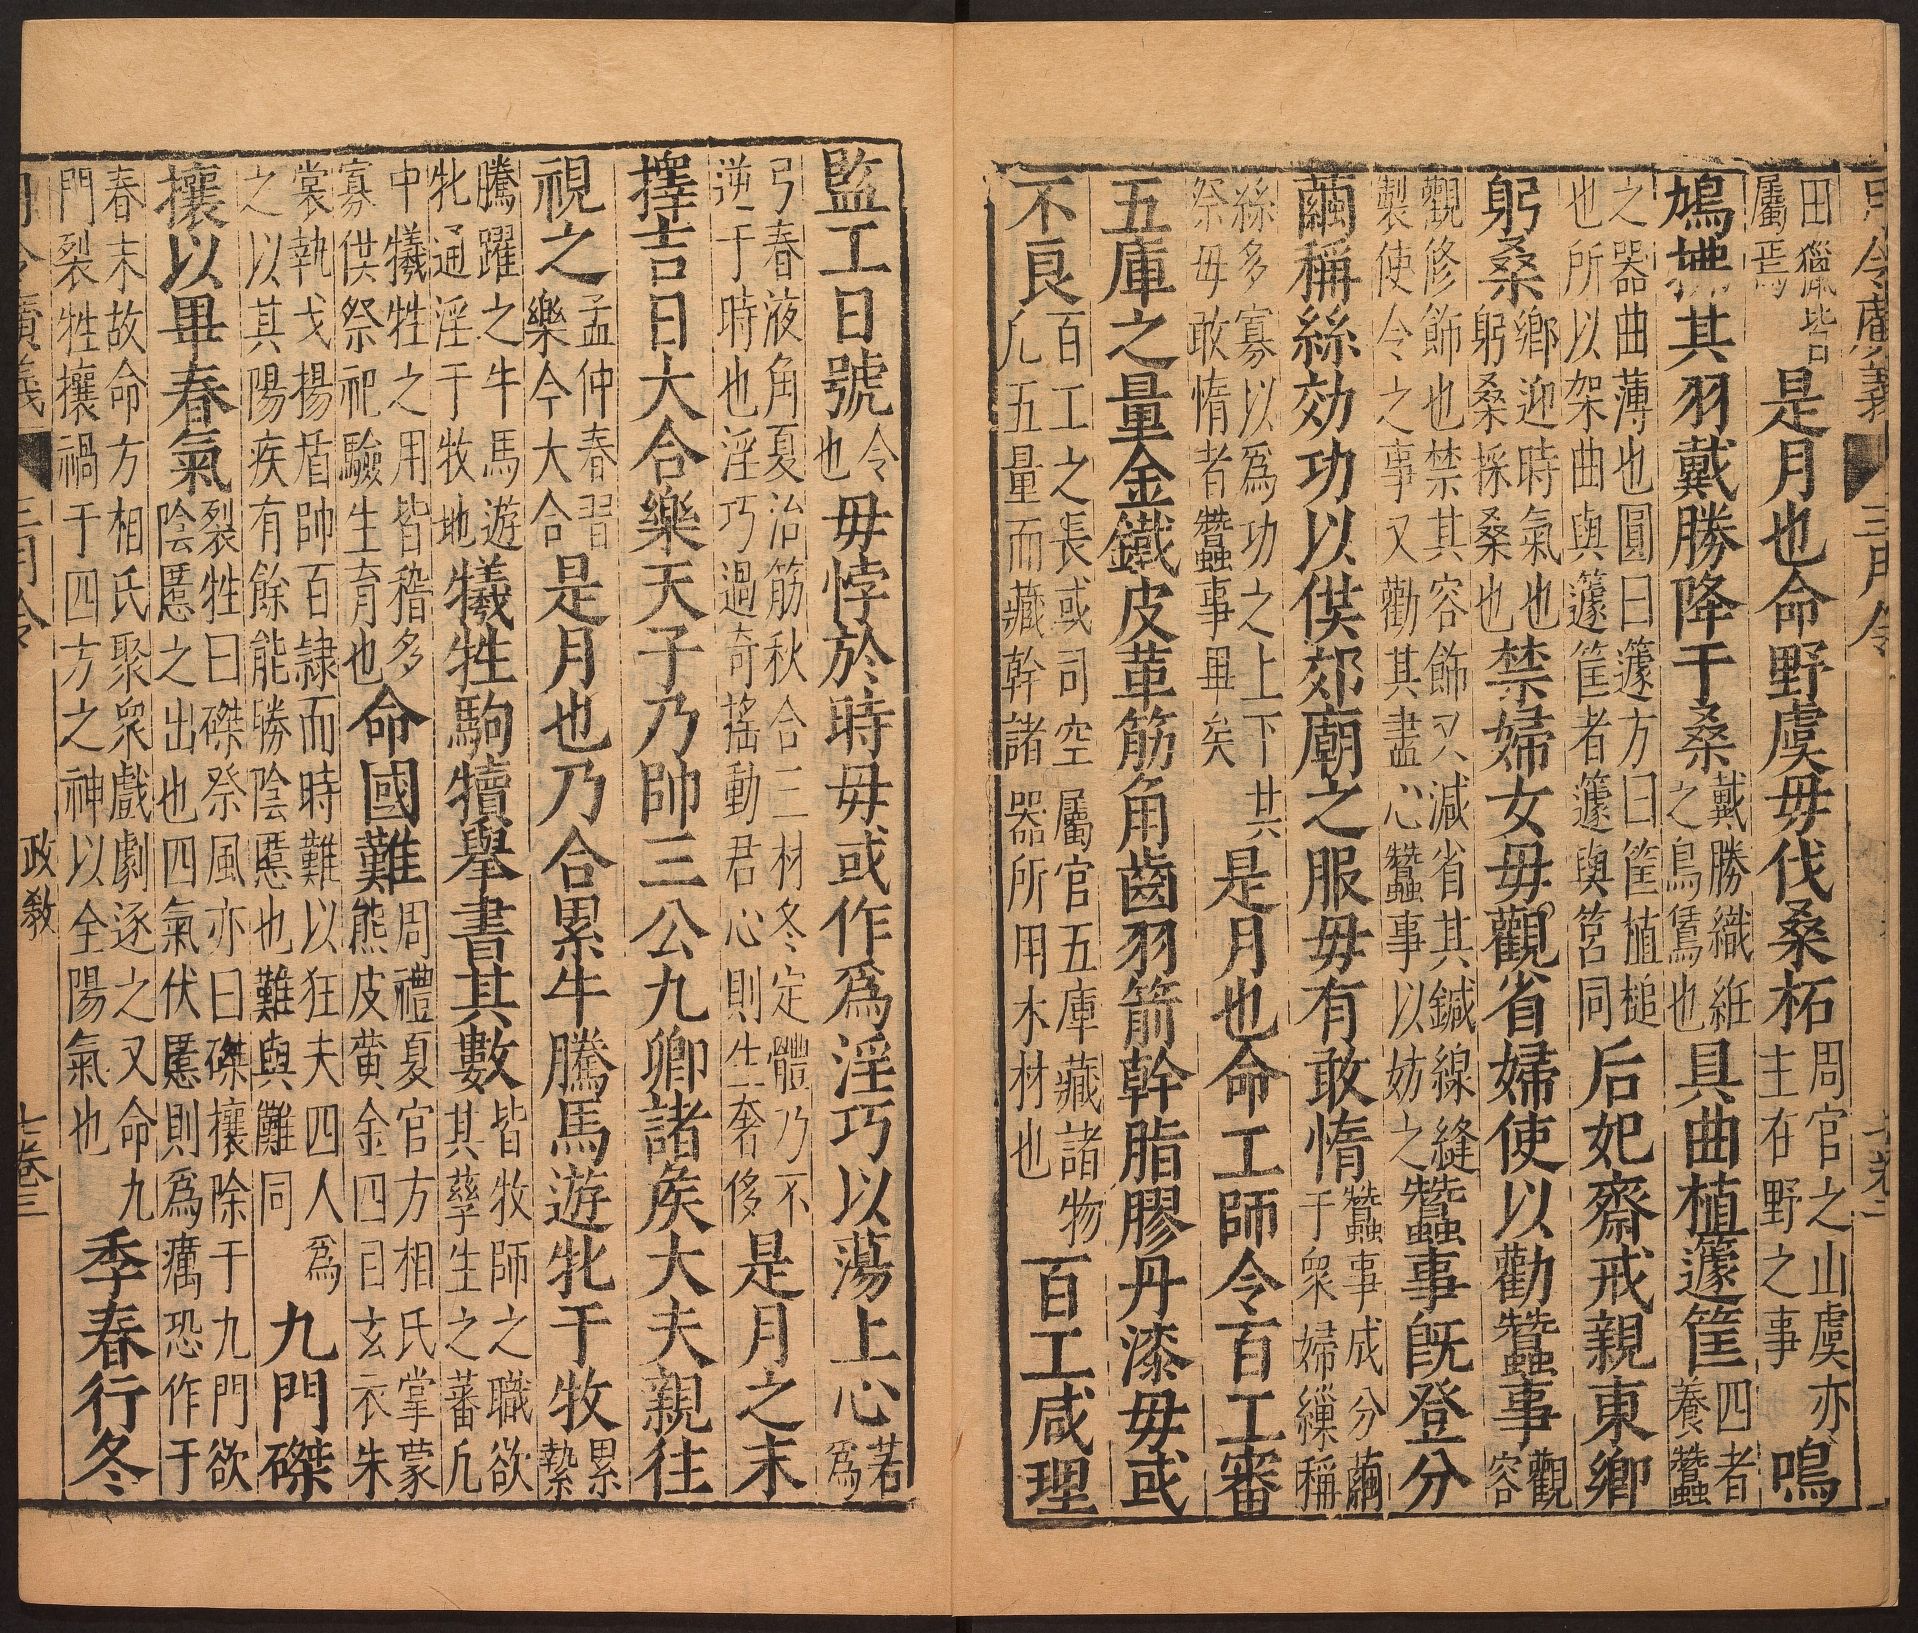 月令廣義 三月令
田獵皆屬焉是月也命野虞毋伐桑柘周官之山虞亦主在野之事鳴
鳩拂其羽戴勝降于桑戴勝織紝之鳥也具曲植籧筐四者養蠶
之器曲薄也圓曰籧方曰筐植槌也所以架曲與籧筐者籧與筥同后妃齋戒親東鄉
躬桑鄉迎時氣也躬桑採桑也禁婦女毋觀省婦使以勸蠶事觀容
觀修飾也禁其容飾又減省其鍼線縫製使令之事又勸其盡心蠶事以妨之蠶事既登分
繭稱絲効功以供郊廟之服毋有敢惰蠶事成分繭于衆婦繅稱
絲多寡以爲功之上下共祭毋敢惰者蠶事畢矣是月也命工師令百工審
五庫之量金鐵皮革筋角齒羽箭幹脂膠丹漆毋或
不良百工之長或司空屬官五庫藏諸物凡五量而藏幹諸器所用木材也百工咸理
監工日號令也毋悖於時毋或作爲淫巧以蕩上心若爲
弓春液角夏治筋秋合三材冬定體乃不逆于時也淫巧過奇搖動君心則生奢侈是月之末
擇吉日大合樂天子乃帥三公九卿諸矦大夫親往
視之孟仲春習樂今大合是月也乃合累牛騰馬遊牝于牧累縶
騰躍之牛馬遊牝通淫于牧地犧牲駒犢舉書其數皆牧師之職欲其孳生之蕃凡
中犧牲之用皆稽多寡供祭祀驗生育也命國難周禮夏官方相氏掌蒙熊皮黄金四目玄衣朱
裳執戈揚盾帥百隷而時難以狂夫四人爲之以其陽疾有餘能勝陰慝也難與儺同九門磔
攘以畢春氣裂牲曰磔祭風亦曰磔攘除于九門欲陰慝之出也四氣伏慝則爲癘恐作于
春末故命方相氏聚衆戲劇逐之又命九門裂牲攘禍于四方之神以全陽氣也季春行冬
月令廣義 三月令 政教 七卷三